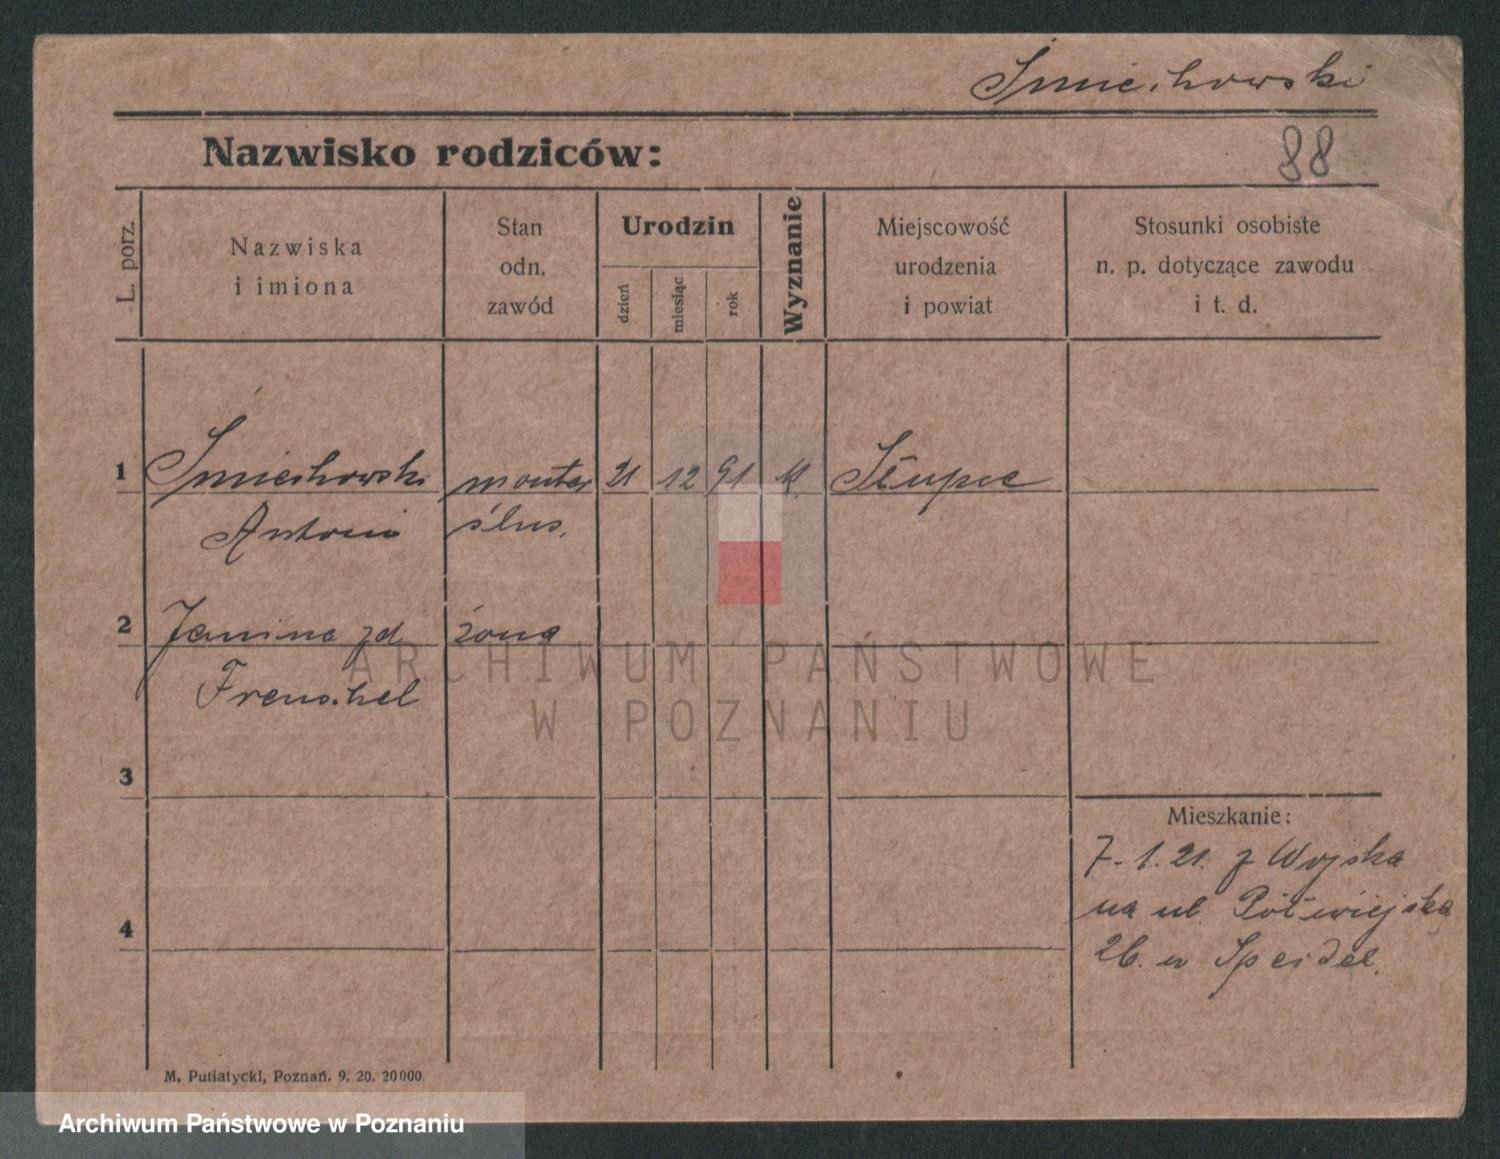 Śmiechowski
Nazwisko rodziców:
88
L. porz.
Nazwiska
i imiona
Stan
odn.
zawód
Urodzin
dzień
miesiąc
rok
Wyznanie
Miejscowość
urodzenia
i powiat
Stosunki osobiste
n. p. dotyczące zawodu
i t. d.
1 Śmiechowski monter 21 12 91 k. Słupce
Antoni ślus.
2 Janina zd żona
Frenschel
3
4
Mieszkanie:
7.1.21. z Wojska
na ul. Półwiejska
26. u Speidel.
M. Putiatycki, Poznań. 9. 20. 20000.
ARCHIWUM PAŃSTWOWE
W POZNANIU
Archiwum Państwowe w Poznaniu